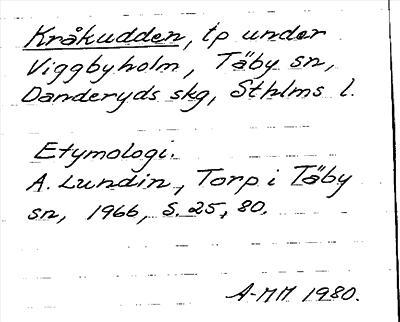 Kråkudden, tp under
Viggbyholm, Täby sn,
Danderyds skg, Sthlms l.
Etymologi.
A. Lundin, Torp i Täby
sn, 1966, S. 25, 80.
A-MM 1980.